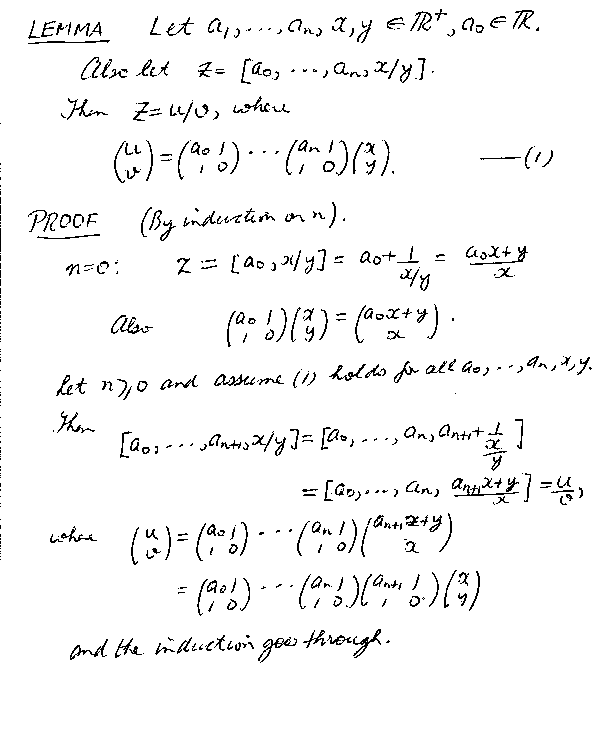 LEMMA Let a₁, ..., aₙ, x, y ∈ ℝ⁺, a₀ ∈ ℝ.
Also let z = [a₀, ..., aₙ, x/y].
Then z = u/v, where
(u; v) = (a₀ 1; 1 0) ··· (aₙ 1; 1 0)(x; y). —(1)
PROOF (By induction on n).
n=0: z = [a₀, x/y] = a₀ + 1/(x/y) = (a₀x+y)/x
Also (a₀ 1; 1 0)(x; y) = (a₀x+y; x).
Let n≥0 and assume (1) holds for all a₀, .., aₙ, x, y.
Then
[a₀, ..., aₙ₊₁, x/y] = [a₀, ..., aₙ, aₙ₊₁ + 1/(x/y)]
= [a₀, ..., aₙ, (aₙ₊₁x+y)/x] = u/v,
where (u; v) = (a₀ 1; 1 0) ··· (aₙ 1; 1 0)(aₙ₊₁x+y; x)
= (a₀ 1; 1 0) ··· (aₙ 1; 1 0)(aₙ₊₁ 1; 1 0)(x; y)
and the induction goes through.